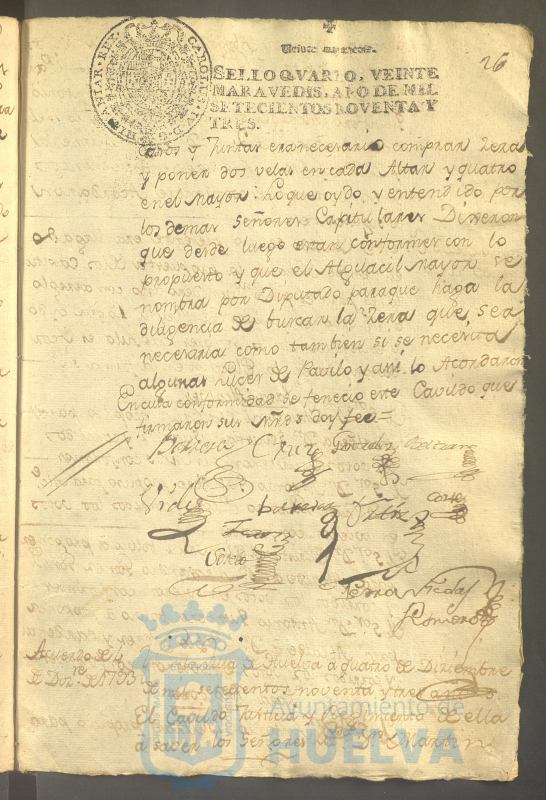 26
Veinte maravedis.
SELLO QVARTO, VEINTE
MARAVEDIS, AÑO DE MIL
SETECIENTOS NOVENTA Y
TRES.
CAROLUS
HISPANIAR. REX
y Juntas era necesario comprar Zera
y poner dos velas en cada Altar y quatro
en el mayor: lo que oydo, y entendido por
los demas Señores Capitulares Dixeron
que desde luego estan conformes con lo
propuesto y que el Alguacil mayor se
nombra por Diputado para que haga la
diligencia de buscar la Zera que sea
necesaria como tambien si se necesita
algunas luces de Pavilo y asi lo Acordaron
En cuia conformidad se fenecio este Cavildo que
firmaron sus mrds doy fee=
Cruz Gonzalez
Cortes
Pedro Nicolas
Romero
Acuerdo de 4
de Dizre de 1793
En la villa de Huelva á quatro de Diziembre
de mil setecientos noventa y tres años
El Cavildo Justicia y Regimiento de ella
á saver los Señores Martin
Ayuntamiento de
HUELVA